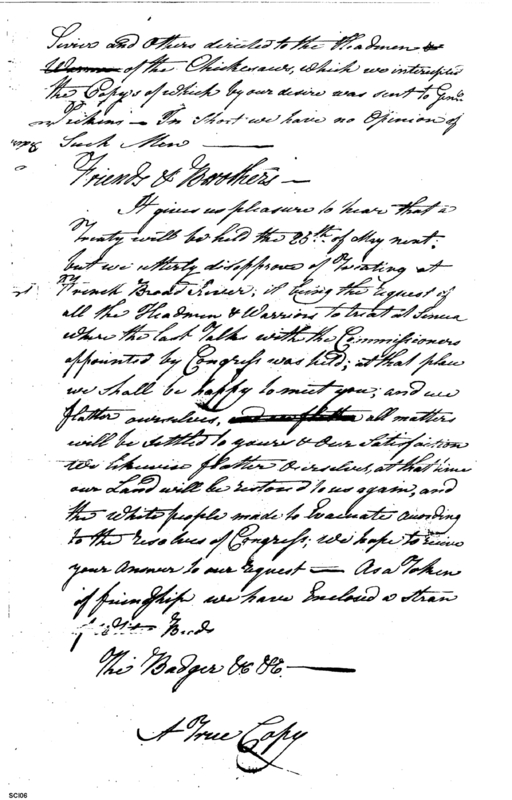 Sivier and others directed to the Headmen &
Warriors of the Chickesaws, which we intercepted
the Copys of which by our desire was sent to Genl.
Pickins — In Short we have no Opinion of
Such Men —
Friends & Brothers —
It gives us pleasure to hear that a
Treaty will be held the 25th. of May next,
but we utterly disapprove of Treating at
French Broad River; it being the request of
all the Headmen & Warriors to treat at Seneca
where the last Talks with the Commissioners
appointed by Congress was held; at that place
we shall be happy to meet you; and we
flatter ourselves, and we flatter all matters
will be settled to yours & Our Satisfaction
We likewise flatter Ourselves, at that time
our Land will be restored to us again, and
the White people made to Evacuate according
to the resolves of Congress; We hope to receive
your Answer to our request — As a Token
of friendship we have Enclosed a Stran
Beeds
The Badger &c &c. —
A True Copy
SCI06